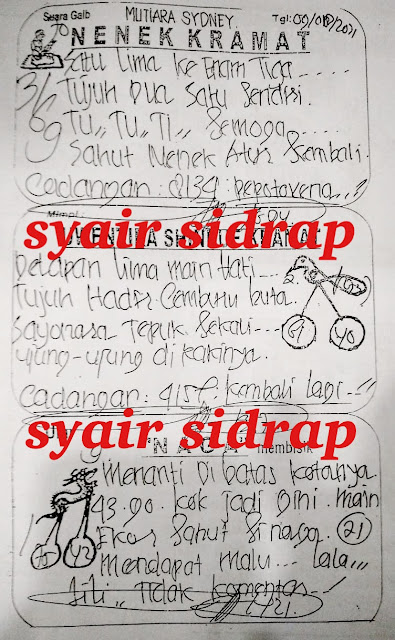 Suara Gaib MUTIARA SYDNEY. Tgl:
70 NENEK KRAMAT
Satu Lima ke Enam Tiga.....
Tujuh Dua Satu Sendiri.
TU,, TU,, TI,, Semoga.....
Sahut Nenek Atur Kembali.
Cadangan: 8139:
syair sidrap
Delapan Lima main Hati....
Tujuh Hadir Cemburu buta.
Sayonara Tepuk Sekali---
ujung-ujung di kakinya.
69 40
Cadangan: Kembali Lagi--
syair sidrap
"NAGA" membisik
Menanti Di batas kotanya
93.90. kok jadi gini. main
Ekor Sahut Si naga. 21
Mendapat Malu... lala,,,
Lili,, Tidak komentar--